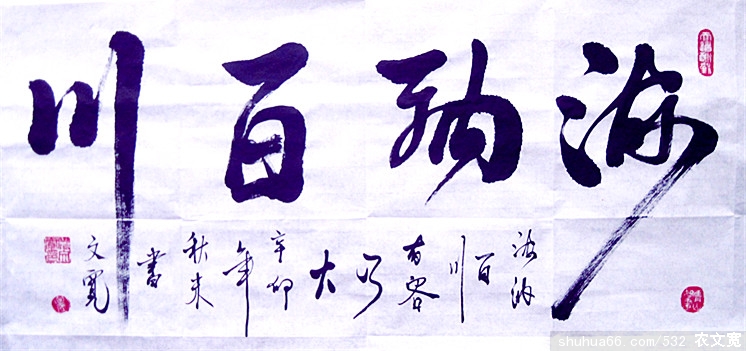 海納百川
海納
百川
有容
乃
大
辛卯
年
秋末
書
文寬
shuhua66.com/532 农文宽